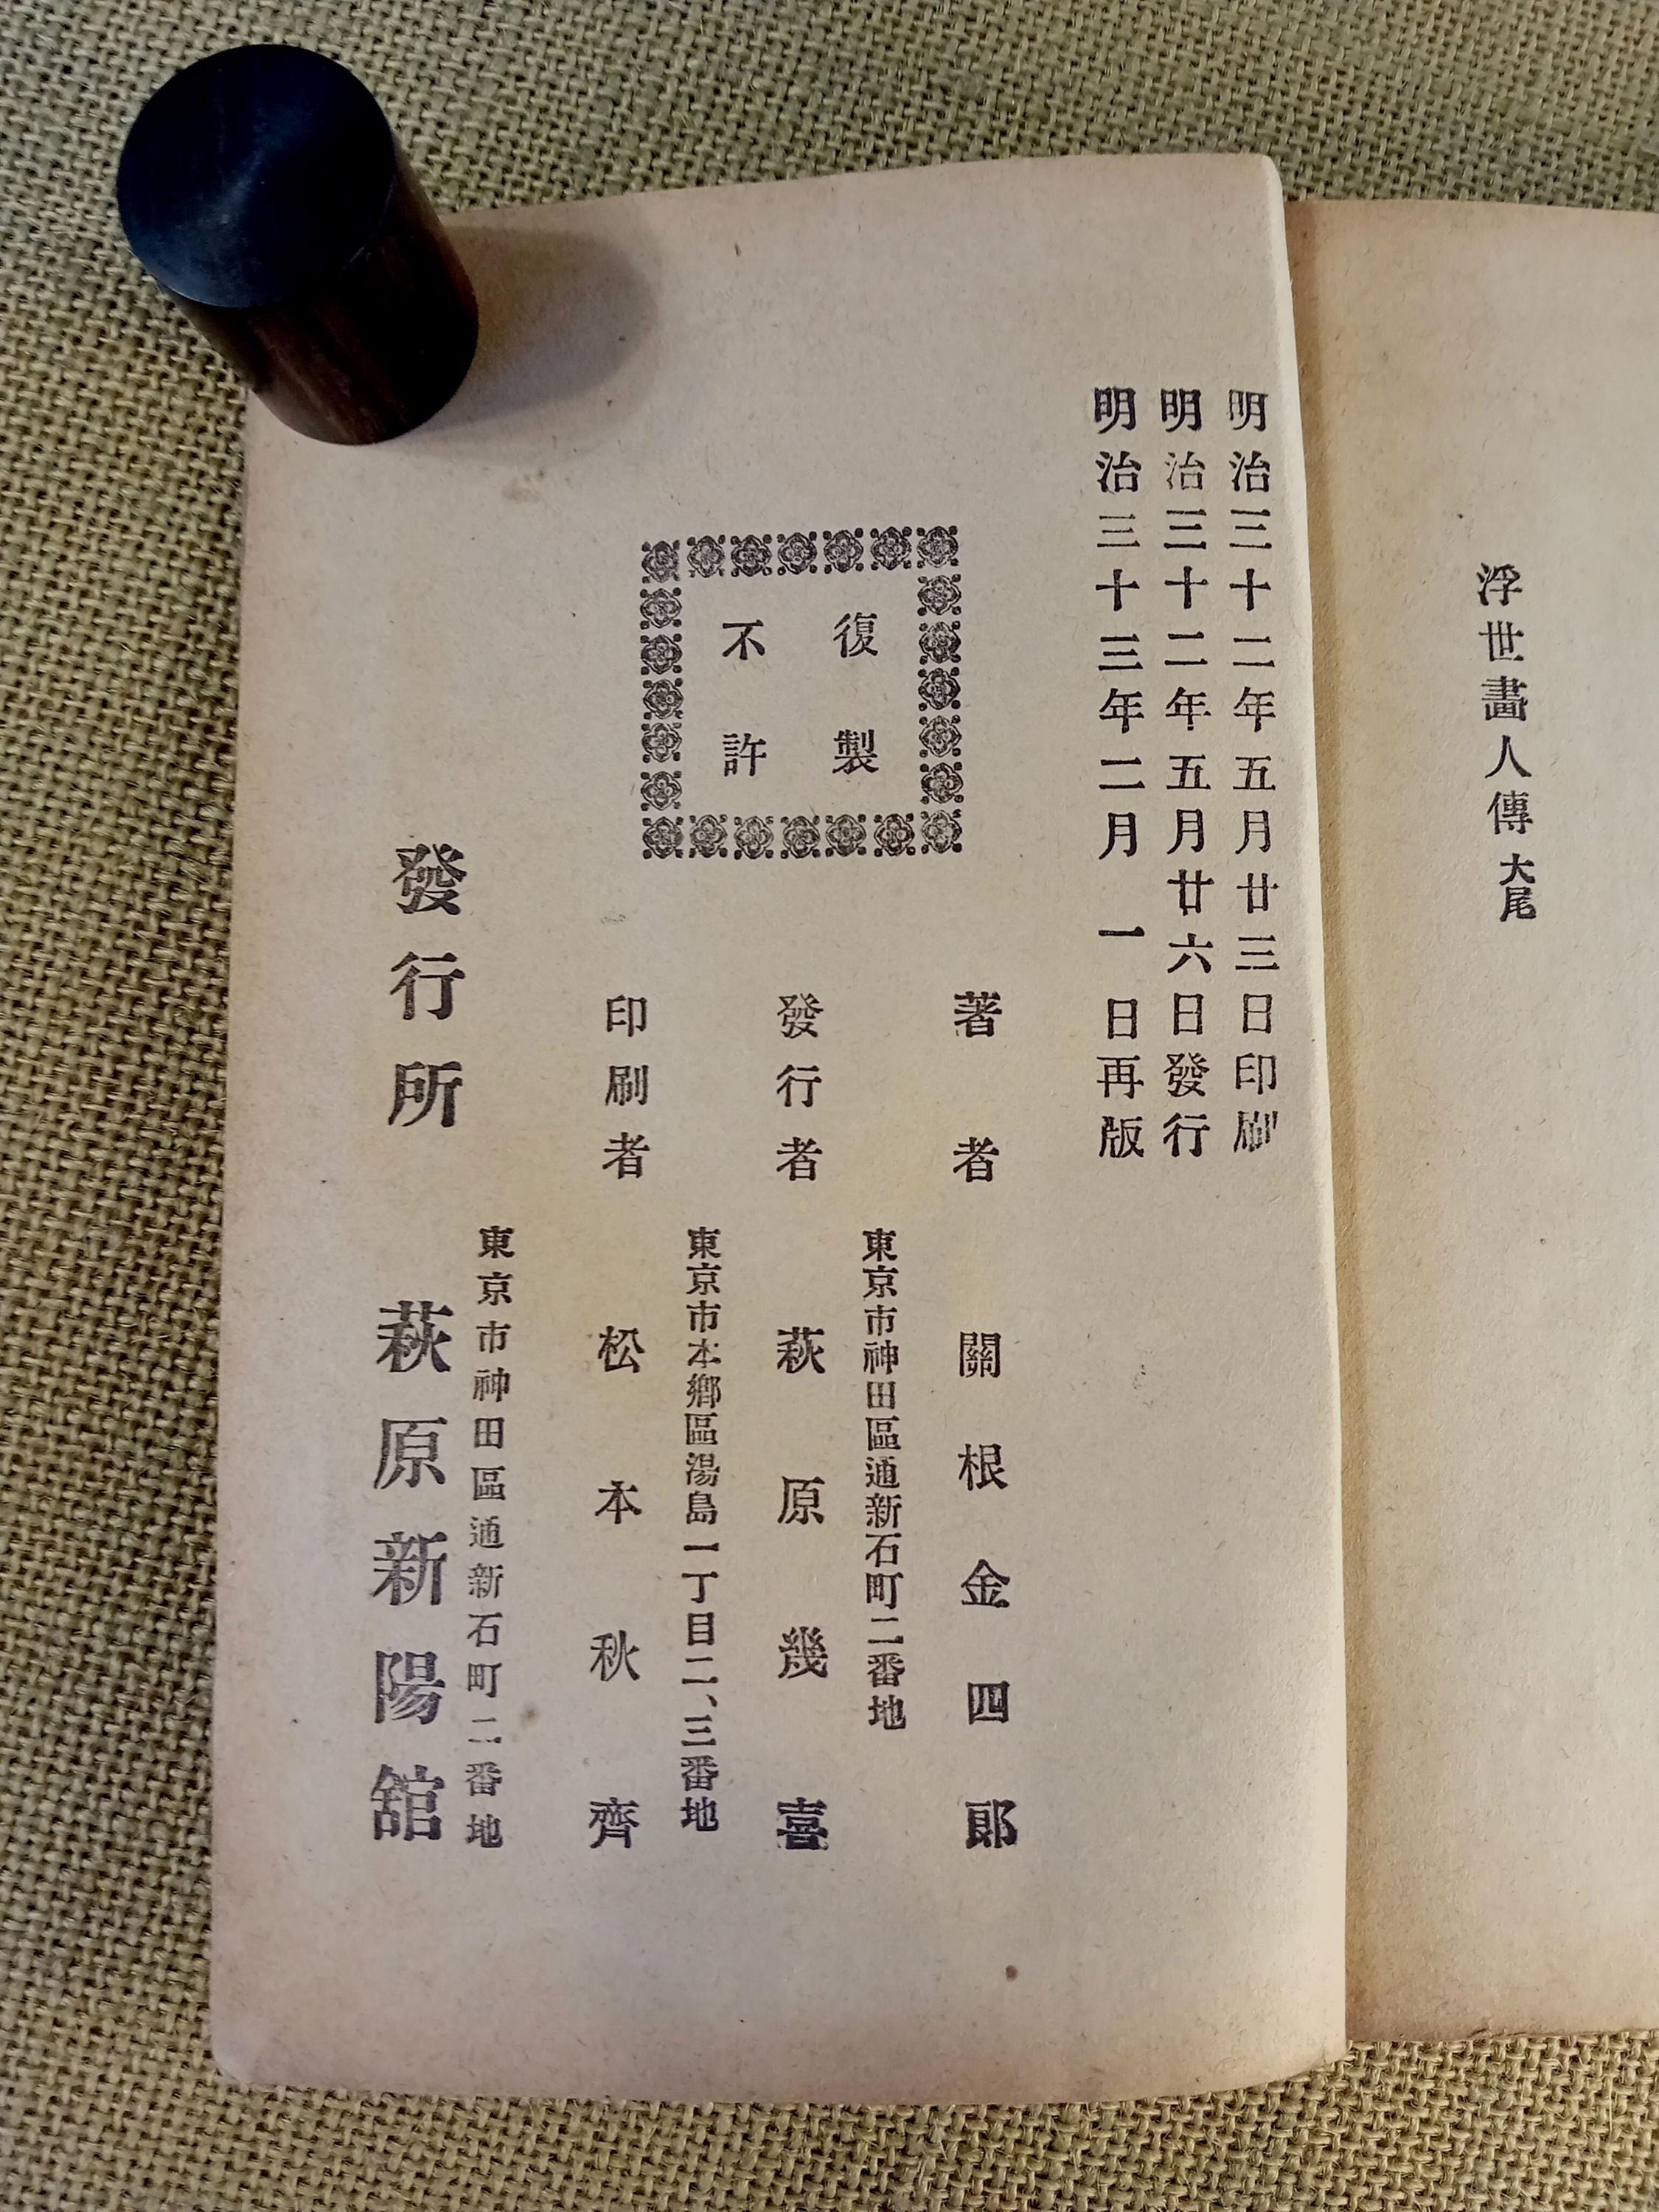 浮世畵人傳 大尾
明治三十二年五月廿三日印刷
明治三十二年五月廿六日發行
明治三十三年二月一日再版
復製
不許
著者 關根金四郞
東京市神田區通新石町二番地
發行者 萩原幾喜
東京市本鄕區湯島一丁目二、三番地
印刷者 松本秋齊
東京市神田區通新石町二番地
發行所 萩原新陽舘